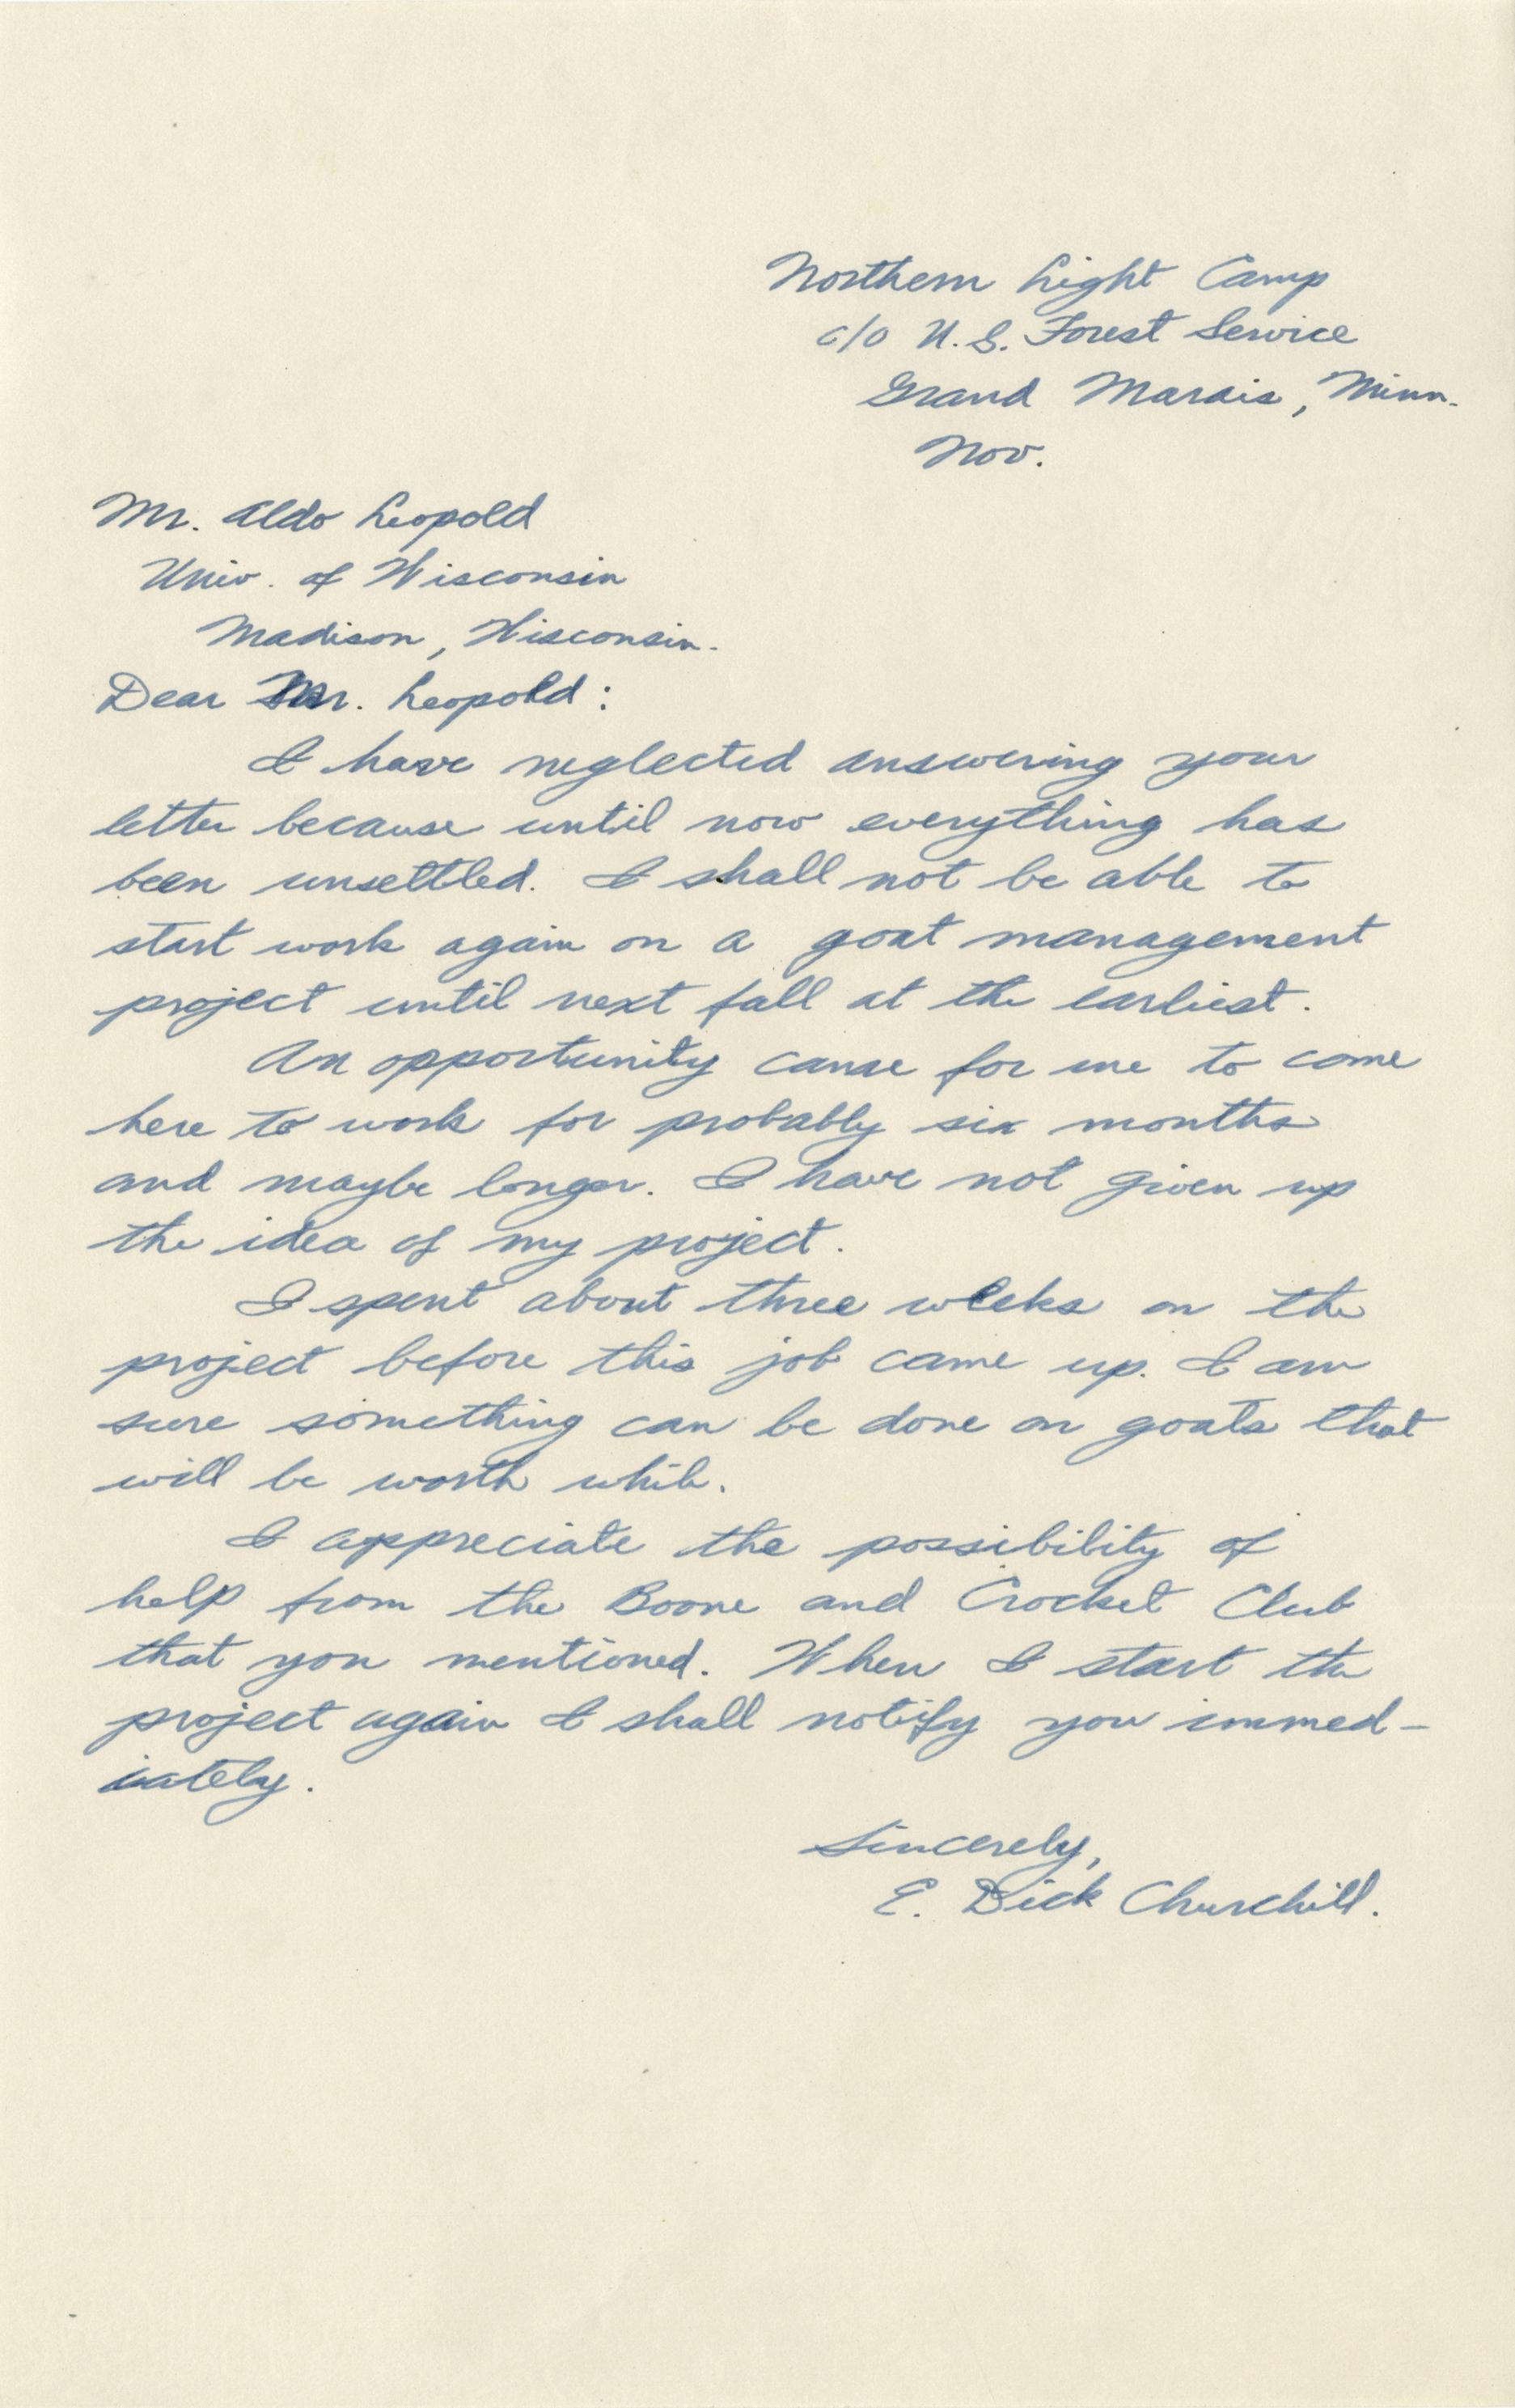 Northern Light Camp
c/o U.S. Forest Service
Grand Marais, Minn.
Nov.
Mr. Aldo Leopold
Univ. of Wisconsin
Madison, Wisconsin.
Dear Mr. Leopold:
I have neglected answering your
letter because until now everything has
been unsettled. I shall not be able to
start work again on a goat management
project until next fall at the earliest.
An opportunity came for me to come
here to work for probably six months
and maybe longer. I have not given up
the idea of my project.
I spent about three weeks on the
project before this job came up. I am
sure something can be done on goats that
will be worth while.
I appreciate the possibility of
help from the Boone and Crocket Club
that you mentioned. When I start the
project again I shall notify you immed-
iately.
Sincerely,
E. Dick Churchill.